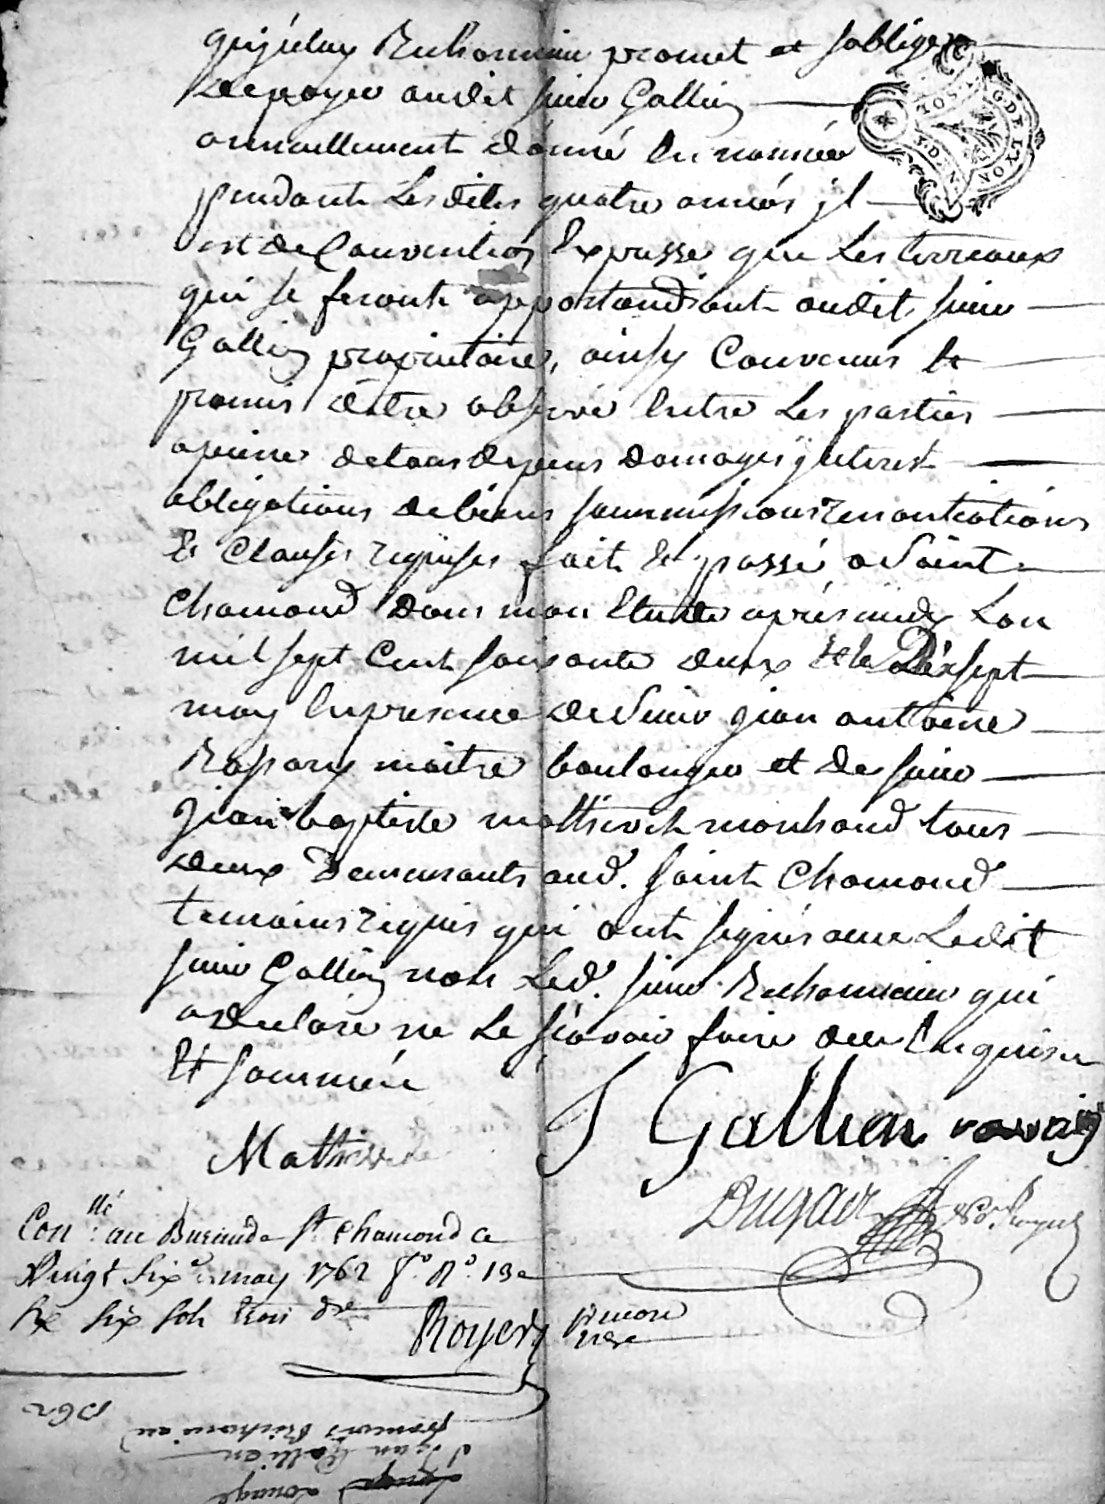 promet et soblige
de payer audit sieur Gallien
annuellement d'année en année
pendant lesdites quatre années jl
est de Convention Expresse que les terreaux
qui se feront appartiendront audit sieur
Gallien proprietaire, ainsy Convenus et
promis d'etre observé Entre les parties
apeine de tous depens domages jnterest
obligations de biens soummissions renontiations
Et Clauses requises fait Et passé a Saint
Chamond dans mon Etude aprés midy Lan
mil sept Cent soixante deux Et le Dixsept
may En presence de Sieur jean antoine
maitre boulanger et de sieur
jean baptiste marchand tous
deux Demeurants aud. saint Chamond
temoins requis qui ont signés avec Ledit
sieur Gallien non Led. sieur Richonnier qui
a declaré ne le sçavoir faire de ce Enquis
Et sommé
J Gallien
Con.llé au Bureau de St Chamond ce
Vingt six may 1762 fo. Ro. 13e
six sols trois drs
Royer
1762
françois
Jean Gallien
Loüage
TION LYON